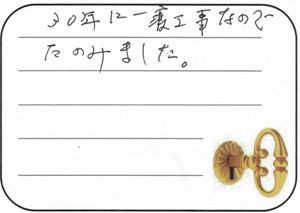 30年に一度工事なので
たのみました。